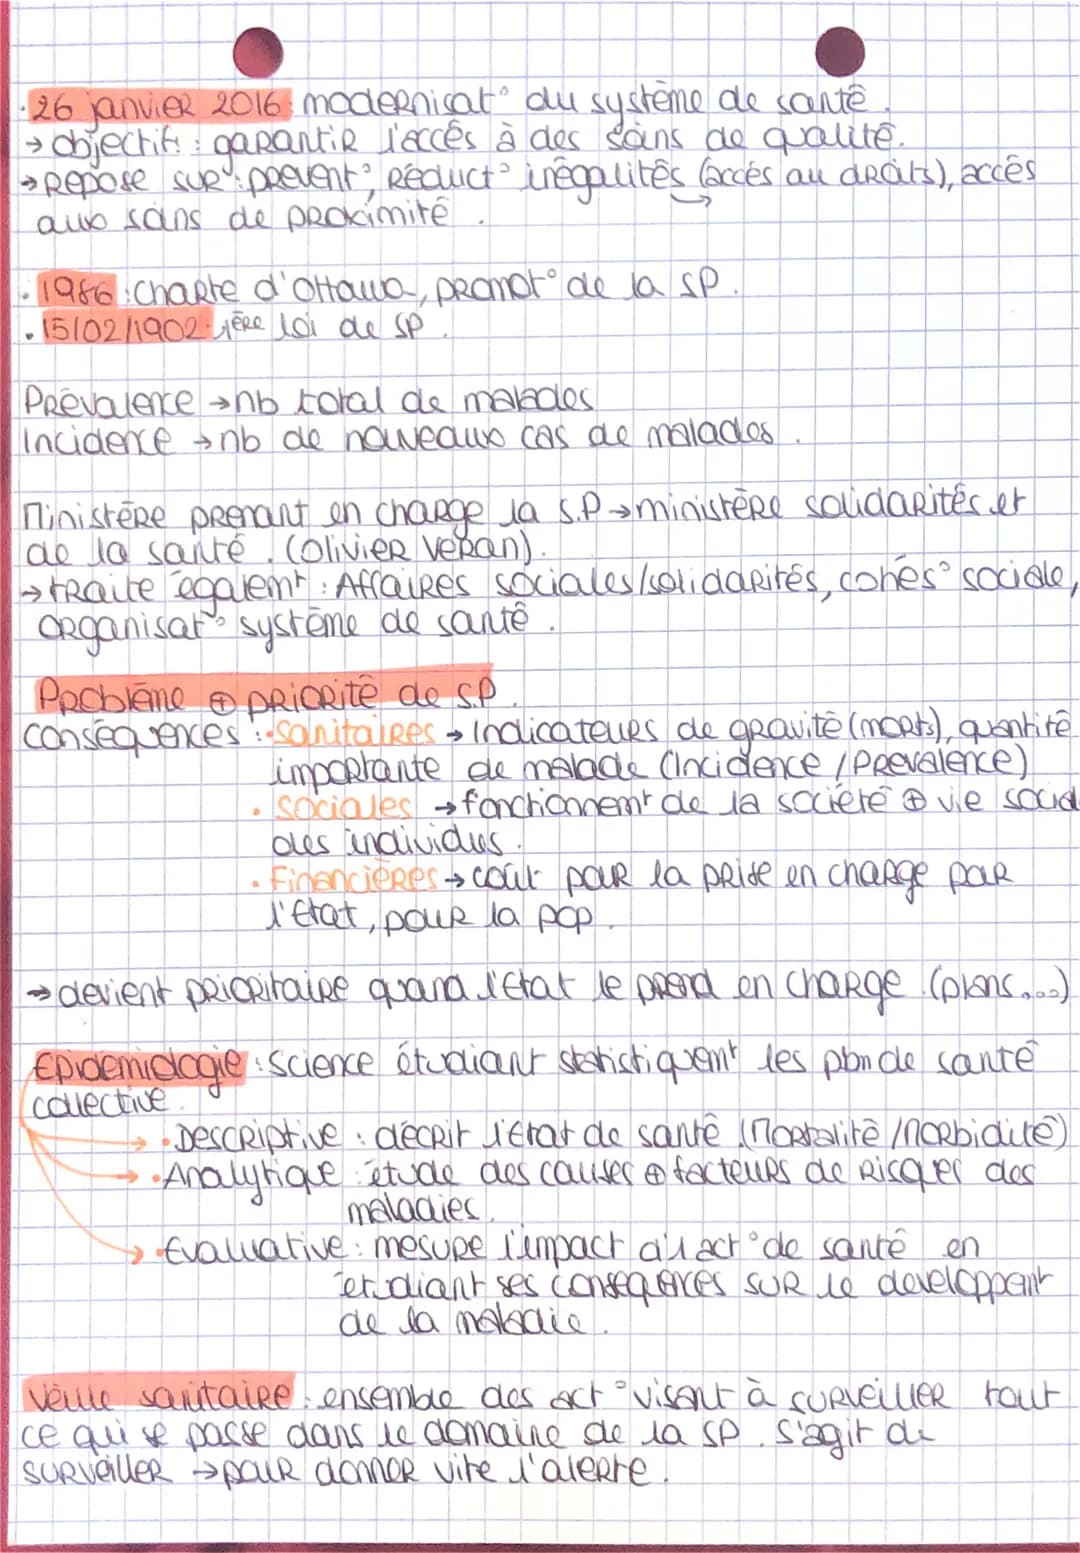 . 26 janvier 2016 : modernisat° du système de santé.
→ objectif : garantir l'accès à des soins de qualité.
→ Repose sur : prevent°, Réduct° inégalités (accès au droits), accès
aux soins de proximité.
. 1986 : charte d'Ottawa, promot° de la SP.
. 15/02/1902 : 1ère loi de SP.
Prévalence → nb total de malades
Incidence → nb de nouveaux cas de malades.
Ministère prenant en charge la S.P → ministère solidarités et
de la santé. (Olivier Veran).
→ traite égalemt : Affaires sociales/solidarités, cohés° sociale,
organisat° système de santé.
Problème ⊕ priorité de S.P
conséquences : . sanitaires → Indicateurs de gravité (morts), quantité
importante de malade (Incidence / Prevalence)
. sociales → fonctionnemt de la société ⊕ vie social
des individus.
. Financières → coût pour la prise en charge par
l'Etat, pour la pop.
→ devient prioritaire quand l'Etat le prend en charge. (plans...)
Epidemiologie : Science étudiant statistiquemt les pbm de santé
collective.
. Descriptive : décrit l'état de santé (Mortalité / Morbidité)
. Analytique : étude des causes ⊕ facteurs de risques des
maladies.
. Evaluative : mesure l'impact d'1 act° de santé en
étudiant ses conséquences sur le developpemt
de la maladie.
Veille sanitaire : ensemble des act° visant à surveiller tout
ce qui se passe dans le domaine de la SP. S'agit de
surveiller → pour donner vite l'alerte.